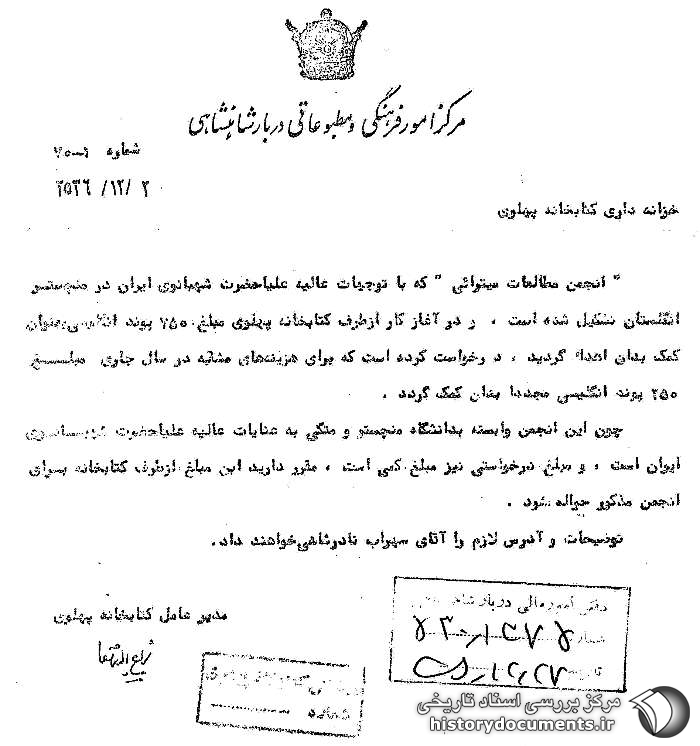 مرکز امور فرهنگی و مطبوعاتی دربار شاهنشاهی
شماره
۲۵۳۶/۱۲/۲
خزانه داری کتابخانه پهلوی
" انجمن مطالعات میترائی " که با توجهات عالیه علیاحضرت شهبانوی ایران در منچستر
انگلستان تشکیل شده است ، و در آغاز کار ازطرف کتابخانه پهلوی مبلغ ۲۵۰ پوند انگلیسی بعنوان
کمک بدان اهداء گردید ، درخواست کرده است که برای هزینه‌های مشابه در سال جاری مبلغ
۲۵۰ پوند انگلیسی مجددا بدان کمک گردد .
چون این انجمن وابسته بدانشگاه منچستر و متکی به عنایات عالیه علیاحضرت شهبانوی
ایران است ، و مبلغ درخواستی نیز مبلغ کمی است ، مقرر دارید این مبلغ ازطرف کتابخانه برای
انجمن مذکور حواله شود .
توضیحات و آدرس لازم را آقای سهراب نادرشاهی خواهند داد .
مدیر عامل کتابخانه پهلوی
دفتر امور مالی دربار
شماره
تاریخ
شماره
مرکز بررسی اسناد تاریخی
historydocuments.ir